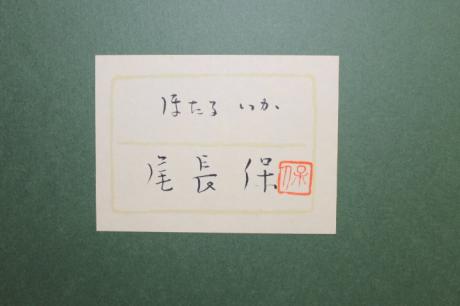 ほたる いか
尾長 保
保